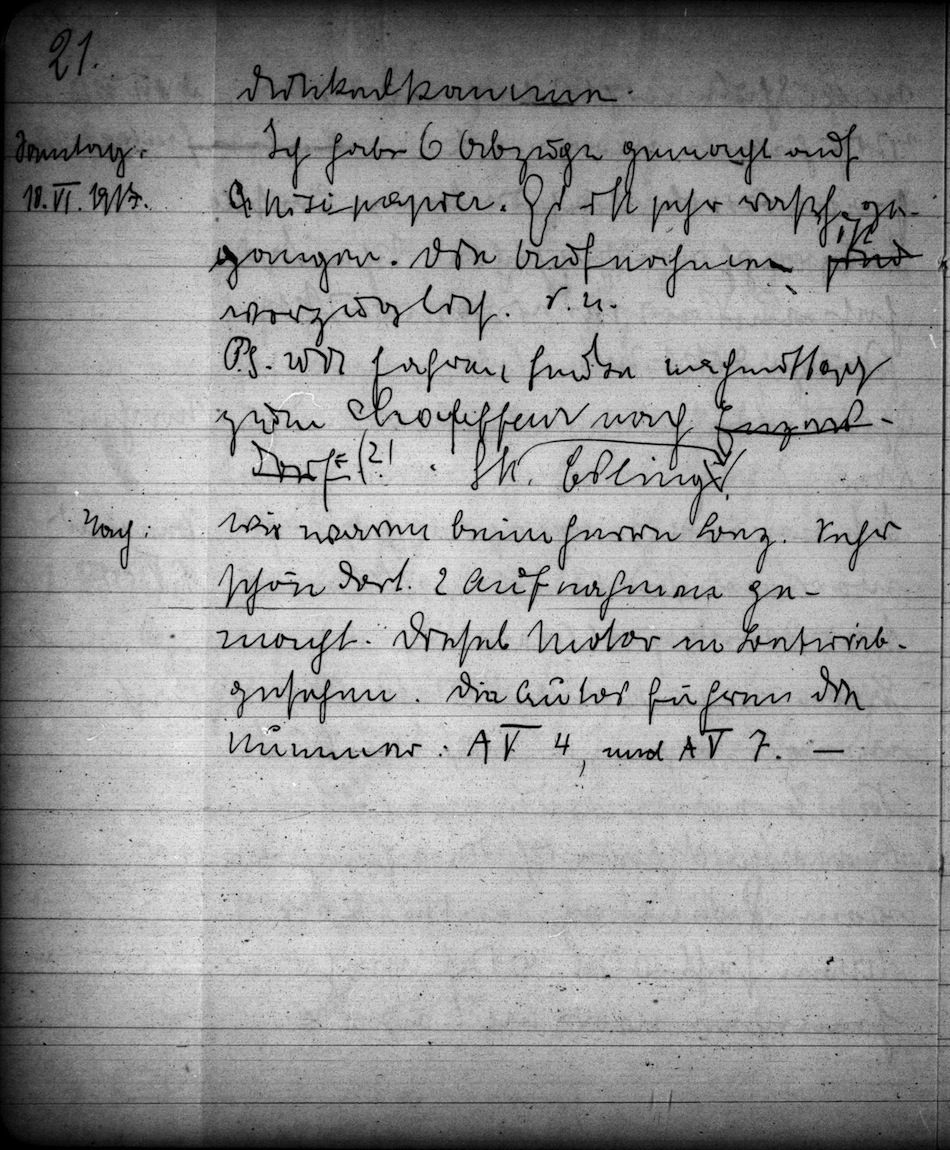 21.
Dunkelkammer.
Sonntag. Ich habe 6 Abzüge gemacht auf
10. VI. 1917. papier. Es ist sehr rasch ge-
gangen. Die Aufnahmen sind ist
vorzüglich. r. u.
P.S. Wir fahren heute nachmittag
zum Chauffeur nach Enzers-
Dorf (?!. St. Eßling!
Nach: Wir waren beim Herrn Lanz. Sehr
schön dort. 2 Aufnahmen ge-
macht. Diesel Motor in Betrieb.
gesehen. Die Autos führen die
Nummer: A V 4, und A V 7. —